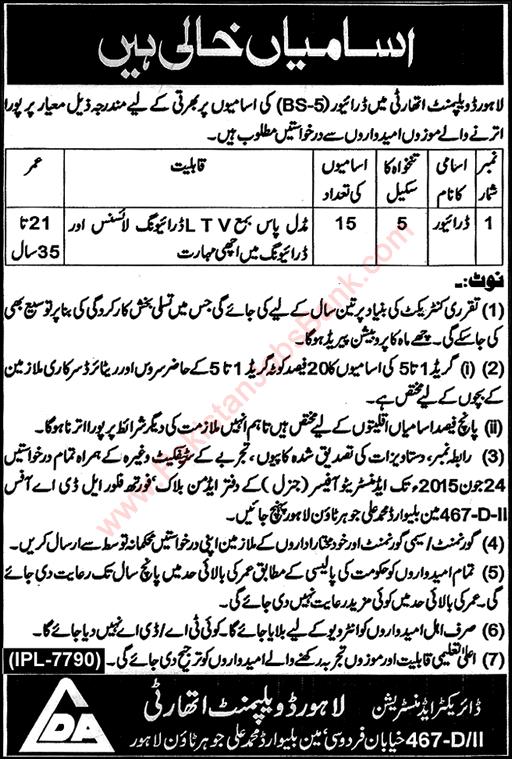 اسامیاں خالی ہیں
لاہور ڈویلپمنٹ اتھارٹی میں ڈرائیور (BS-5) کی اسامیوں پر بھرتی کے لیے مندرجہ ذیل معیار پر پورا
اترنے والے موزوں امیدواروں سے درخواستیں مطلوب ہیں۔
نمبر شمار | اسامی کا نام | تنخواہ کا سکیل | اسامیوں کی تعداد | قابلیت | عمر
1 | ڈرائیور | 5 | 15 | مڈل پاس بمع LTV ڈرائیونگ لائسنس اور ڈرائیونگ میں اچھی مہارت | 21 تا 35 سال
نوٹ:۔
(1) تقرری کنٹریکٹ کی بنیاد پر تین سال کے لیے کی جائے گی جس میں تسلی بخش کارکردگی کی بنا پر توسیع بھی
کی جاسکے گی۔ چھ ماہ کا پروبیشن پیریڈ ہوگا۔
(2) (i) گریڈ 1 تا 5 کی اسامیوں کا 20 فیصد کوٹہ گریڈ 1 تا 5 کے حاضر سروس اور ریٹائرڈ سرکاری ملازمین
کے بچوں کے لیے مختص ہے۔
(ii) پانچ فیصد اسامیاں اقلیتوں کے لیے مختص ہیں تاہم انہیں ملازمت کی دیگر شرائط پر پورا اترنا ہوگا۔
(3) رابطہ نمبر، دستاویزات کی تصدیق شدہ کاپیوں، تجربے کے سرٹیفکیٹ وغیرہ کے ہمراہ تمام درخواستیں
24 جون 2015ء تک ایڈمنسٹریٹو آفیسر (جنرل) کے دفتر ایڈمن بلاک، فورتھ فلور ایل ڈی اے آفس
467-D-II مین بلیوارڈ محمد علی جوہر ٹاؤن لاہور پہنچ جائیں۔
(4) گورنمنٹ/سیمی گورنمنٹ اور خودمختار اداروں کے ملازمین اپنی درخواستیں محکمانہ توسط سے ارسال کریں۔
(5) تمام امیدواروں کو حکومت کی پالیسی کے مطابق عمر کی بالائی حد میں پانچ سال تک رعایت دی جائے
گی۔ عمر کی بالائی حد میں کوئی مزید رعایت نہیں دی جائے گی۔
(6) صرف اہل امیدواروں کو انٹرویو کے لیے بلایا جائے گا۔ کوئی ٹی اے/ڈی اے نہیں دیا جائے گا۔
(7) اعلیٰ تعلیمی قابلیت اور موزوں تجربہ رکھنے والے امیدواروں کو ترجیح دی جائے گی۔ (IPL-7790)
LDA
ڈائریکٹر ایڈمنسٹریشن لاہور ڈویلپمنٹ اتھارٹی
467-D/II خیابان فردوسی، مین بلیوارڈ محمد علی جوہر ٹاؤن لاہور
www.PakistanJobsBank.com